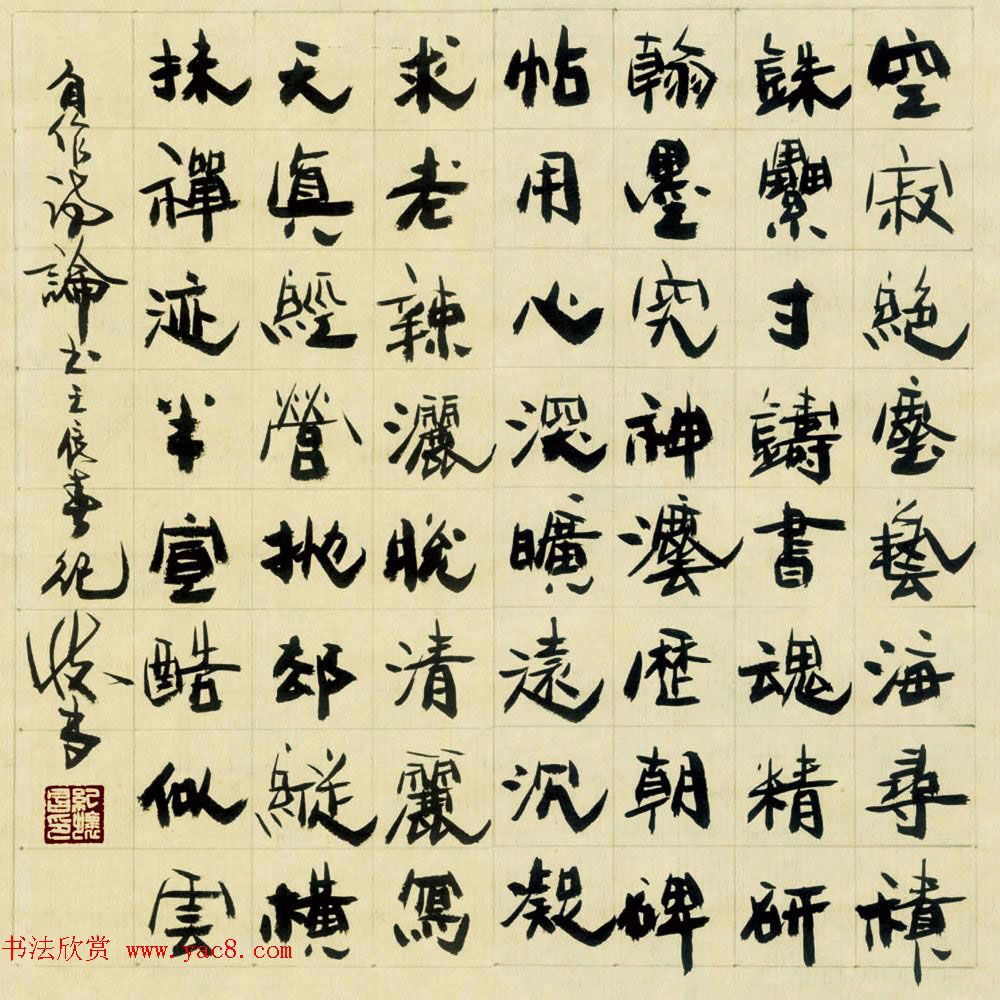 空寂絶塵藝海尋積
銖纍寸鑄書魂精研
翰墨究神歷朝碑
帖用心深曠遠沉凝
求老辣灑脱清麗寫
天真經營拋卻縱橫
抹禪迹半宣酷似雲
自作诗論书
书法欣赏 www.yac8.com